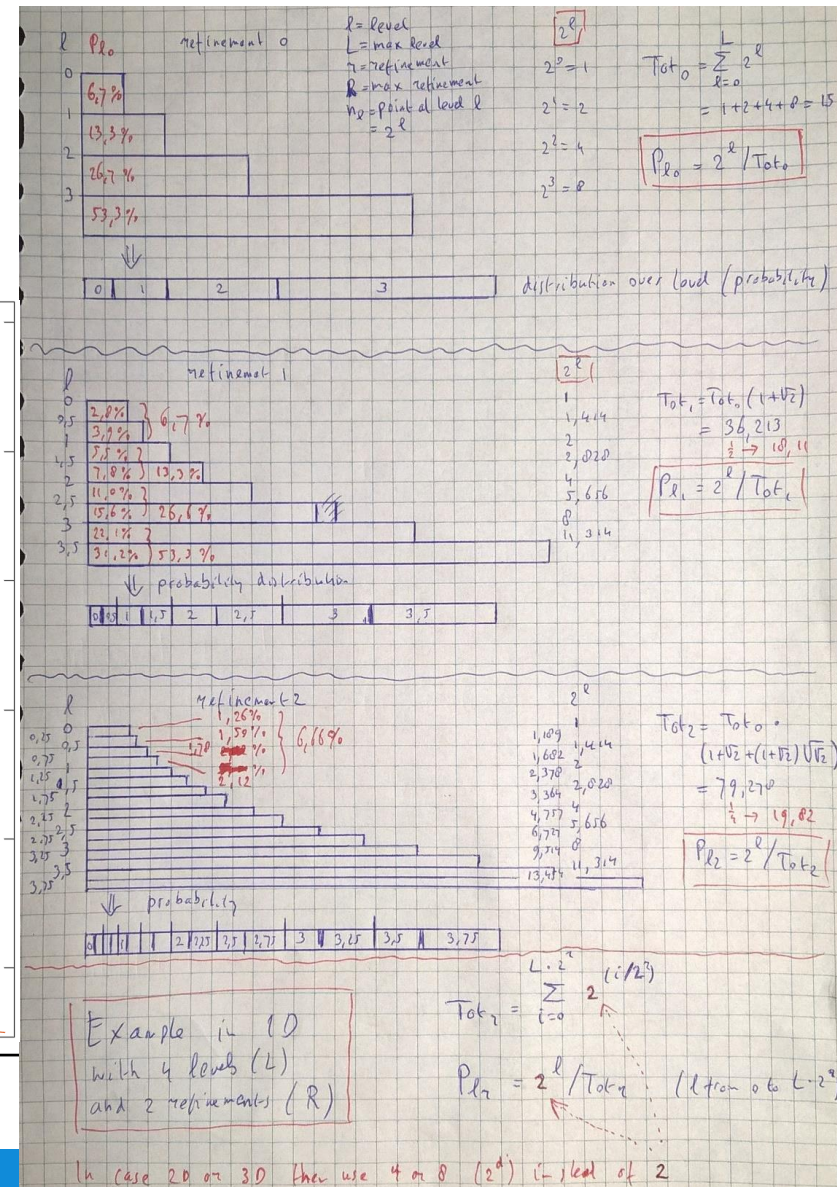 l Pl0 refinement 0
l = level
L = max level
r = refinement
R = max refinement
nl = point at level l
= 2^l
2^l
2^0 = 1
2^1 = 2
2^2 = 4
2^3 = 8
Tot0 = Σ 2^l
L
l=0
= 1+2+4+8 = 15
Pl0 = 2^l / Tot0
0
6,7%
1
13,3%
2
26,7%
3
53,3%
0 1 2 3 distribution over level (probability)
l refinemot 1
2^l
0
2,8%
0,5
3,9%
6,7%
1
5,5%
1,5
7,8%
13,3%
2
11,0%
2,5
15,6%
26,6%
3
22,1%
3,5
31,2%
53,3%
1
1,414
2
2,828
4
5,656
8
11,314
Tot1 = Tot0 (1+√2)
= 36,213
1/2 → 18,11
Pl1 = 2^l / Tot1
probability distribution
0 0,5 1 1,5 2 2,5 3 3,5
l refinement 2
2^l
0
0,25
0,5
0,75
1
1,25
1,5
1,75
2
2,25
2,5
2,75
3
3,25
3,5
3,75
1,26%
1,50%
1,78 %
%
2,12
6,66%
1
1,189
1,414
1,682
2
2,378
2,828
3,364
4
4,757
5,656
6,727
8
9,514
11,314
13,454
Tot2 = Tot0 ·
(1+√2+(1+√2)√√2)
= 79,278
1/4 → 19,82
Pl2 = 2^l / Tot2
probability
0 1 1 2 2,25 2,5 2,75 3 3,25 3,5 3,75
Example in 1D
with 4 levels (L)
and 2 refinements (R)
Totr = Σ 2^(i/2^r)
L·2^r
i=0
Plr = 2^l / Totr (l from 0 to L·2^r
In case 2D or 3D then use 4 or 8 (2^d) instead of 2